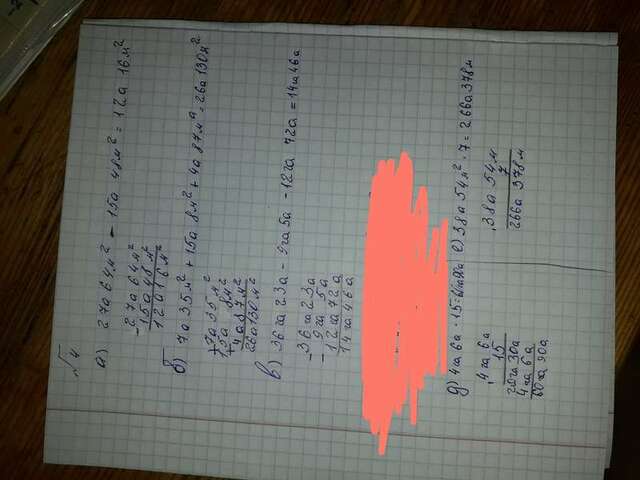 √4
а) 27а 64м² - 15а 48м² = 12а 16м²
-27а 64м²
15а 48м²
12а 16м²
б) 7а 35м² + 15а 8м² + 4а 87м² = 26а 130м²
+7а 35м²
+15а 8м²
4а 87м²
26а 130м²
в) 36га 23а - 9га 5а - 12га 72а = 14га 46а
-36га 23а
-9га 5а
12га 72а
14га 46а
д) 4га 6а · 15 =
4га 6а
15
20га 30а
4га 6а
60га 90а
е) 38а 54м² · 7 = 266а 378м
38а 54м
7
266а 378м